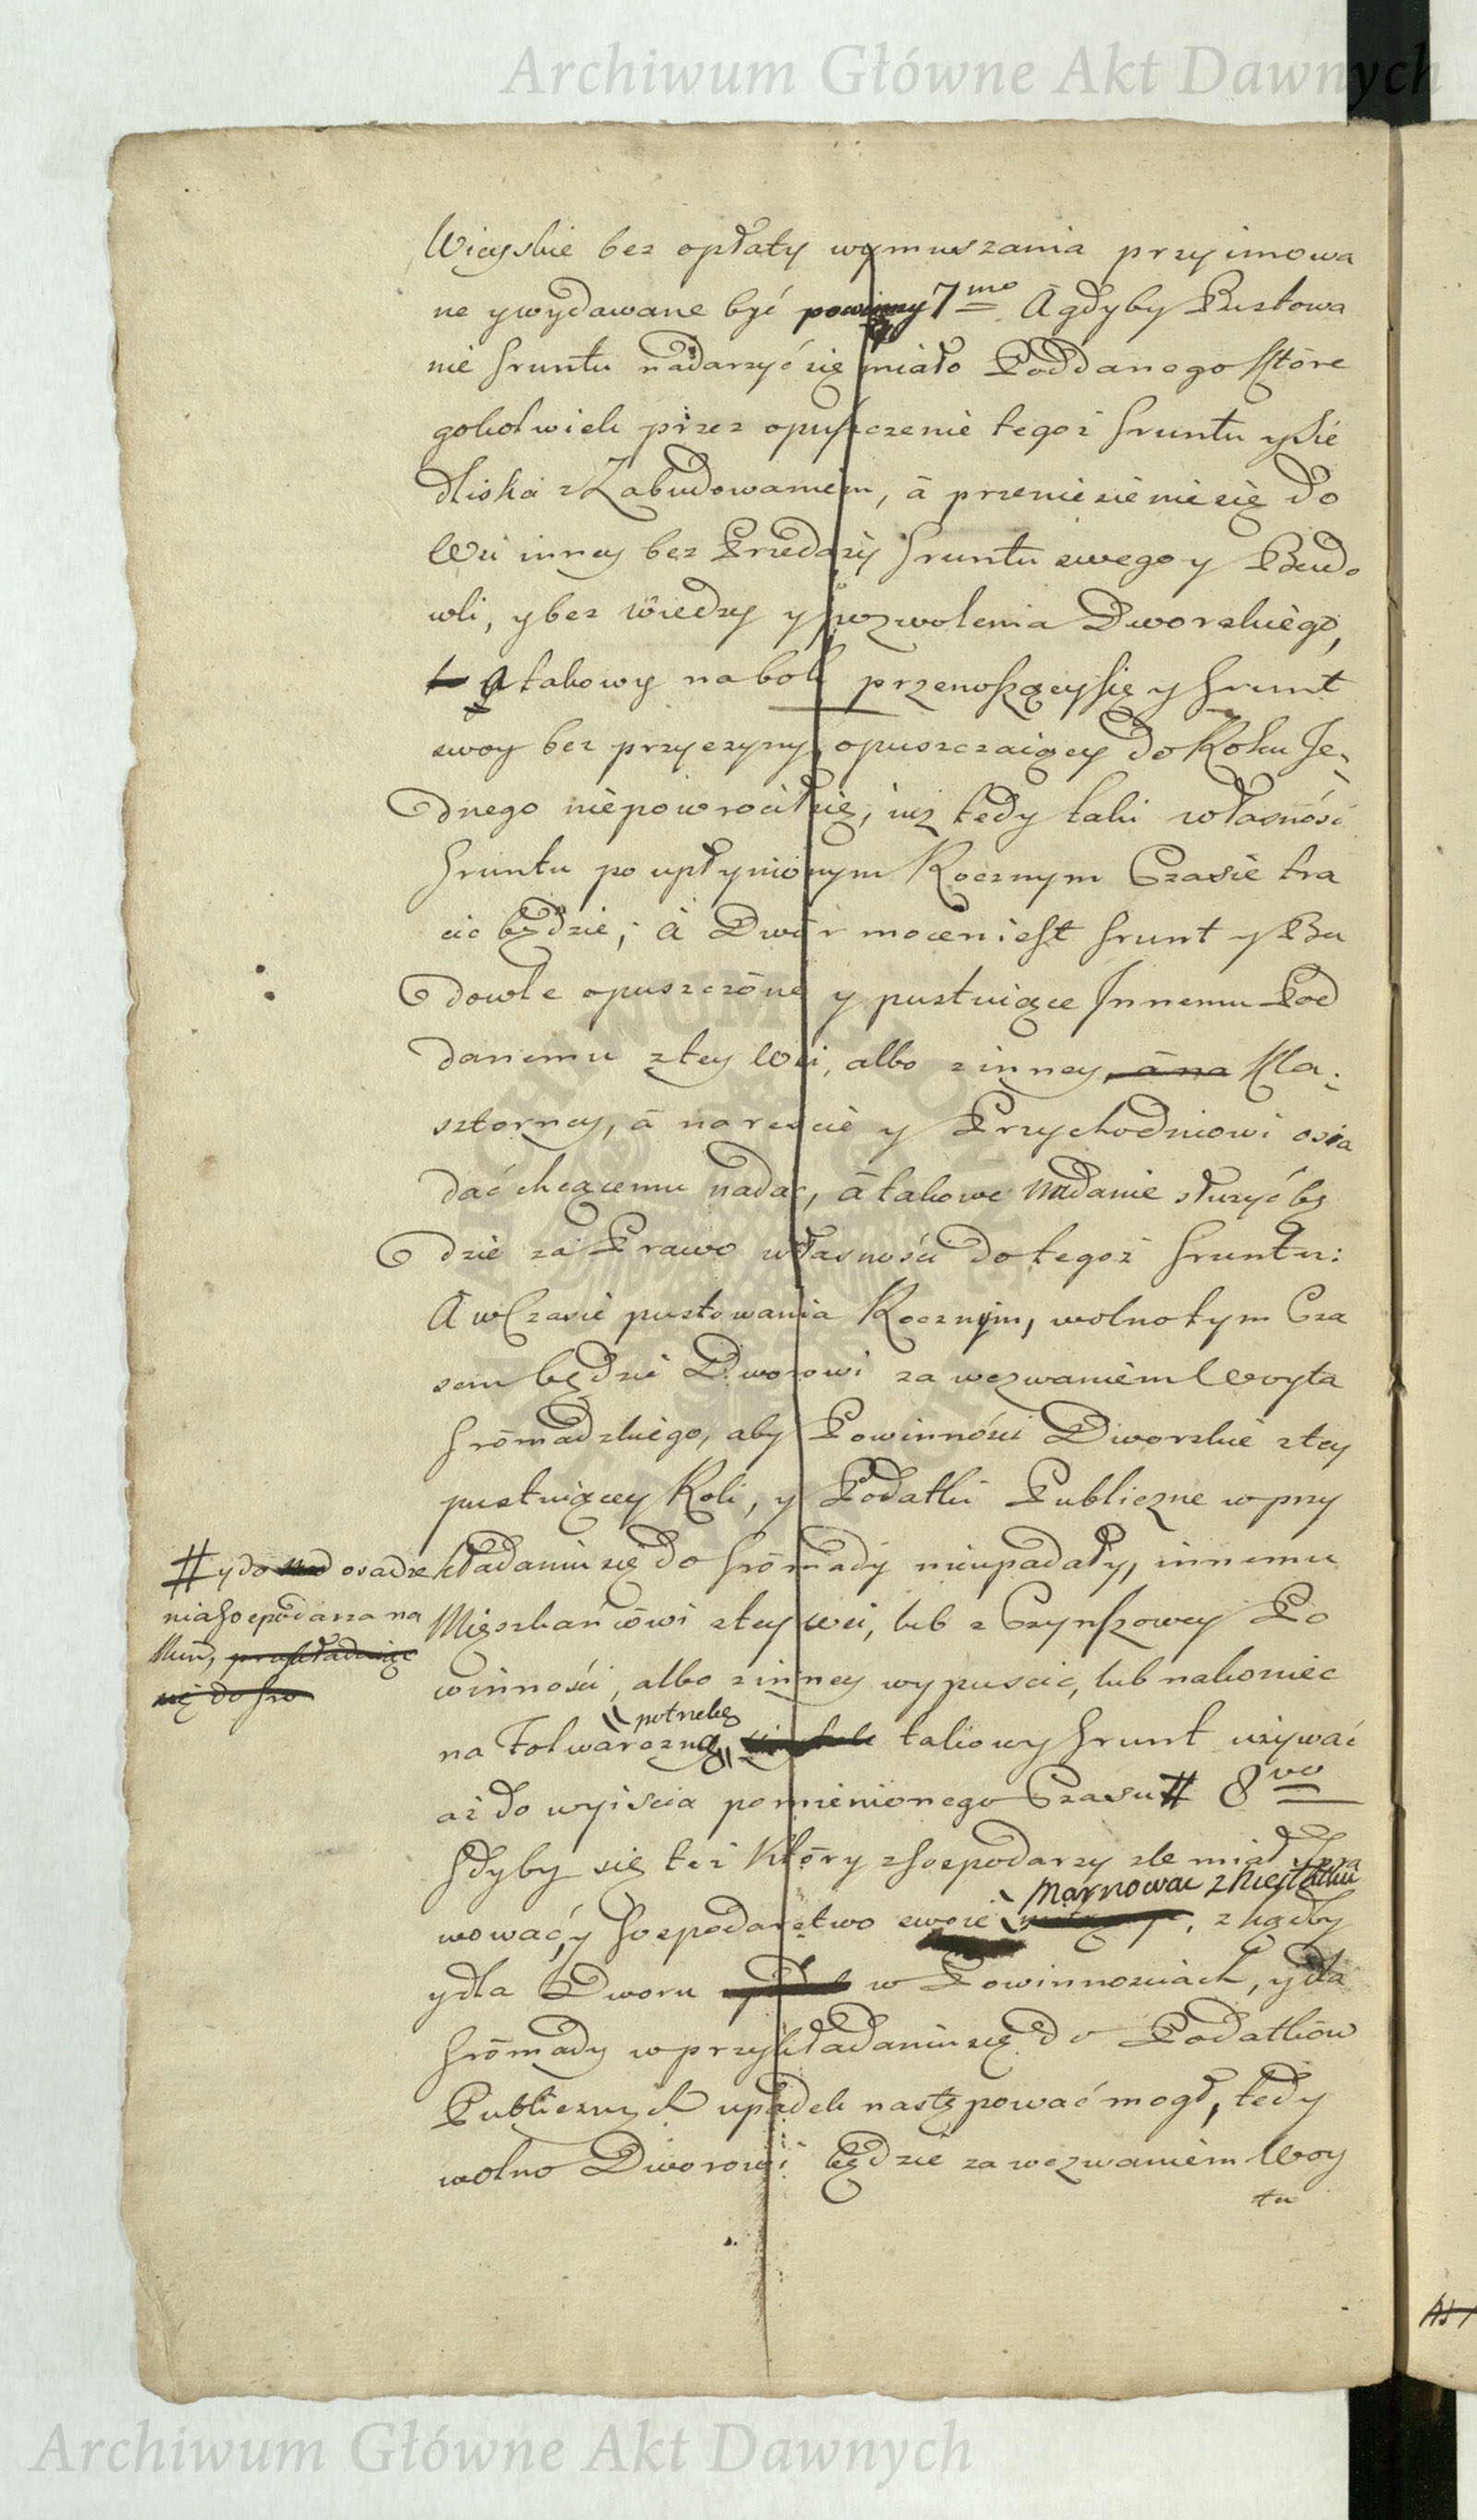 Archiwum Główne Akt Dawnych
Wieyskie bez opłaty wymuszania przyimowa
ne y wydawane być powinny 7mo A gdyby Pustowa
nie Gruntu nadarzyć się miało Poddanego Które
gokolwiek przez opuszczenie tegoż Gruntu y Sie
dliska z Zabudowaniem, á przeniesienie się do
Wsi inney bez Przedaży Gruntu swego y Budo
wli, y bez wiedzy y pozwolenia Dworskiego,
á takowy na bok przenoszący się y Grunt
swoy bez przyczyny opuszczaiący do Roku Je-
dnego niepowrocił się, iuż tedy taki własność
Gruntu po upłynionym Rocznym Czasie tra
cić będzie; á Dwór mocen iest Grunt y Bu
dowle opuszczone y pustuiące Innemu Pod
danemu z tey Wsi, albo z inney á na Kla-
sztorney, á nareście y Przychodniowi osia
dać chcącemu nadać, á takowe nadanie służyć bę
dzie za Prawo własności do tegoż Gruntu:
A w Czasie pustowania Rocznym, wolno tym Cza
sem będzie Dworowi za wezwaniem Woyta
Gromadzkiego, aby Powinności Dworskie z tey
pustuiącey Roli, y Podatki Publiczne w przy
kładaniu się do Gromady nieupadały, innemu
# y do osadze
nia Gospodarza na
Nim, przykładaiąc
się do Gro
Mieszkańcowi z tey wsi, lub z Czynszowey Po
winności, albo z inney wypuscić, lub nakoniec
potrzebę
na Folwarczną takowy Grunt używać
aż do wyiścia pomienionego Czasu # 8vo
Gdyby się też Który z Gospodarzy źle miał spra
Marnować z Niestatku
wować, y Gospodarstwo swoie, zkądby
y dla Dworu w Powinnościach, y dla
Gromady w przykładaniu się do Podatków
Publicznych upadek następować mogł, tedy
wolno Dworowi będzie za wezwaniem Woy
ta
Archiwum Główne Akt Dawnych